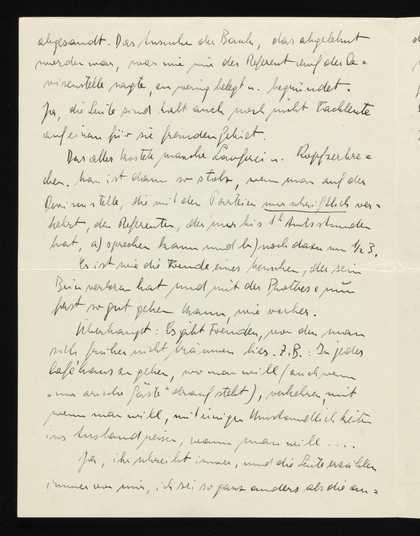 abgesandt. Das Ansuchen der Bank, das abgelehnt
worden war, war wie mir der Referent auf der De-
visenstelle sagte, zu wenig belegt u. begründet.
Ja, die Leute sind halt auch noch nicht Fachleute
auf einem für sie fremden Gebiet.
Das alles kostete manche Lauferei u. Kopfzerbre-
chen. Man ist dann so stolz, wenn man auf der
Devisenstelle, die mit den Parteien nur schriftlich ver-
kehrt, den Referenten, der nur bis 1h Amtsstunden
hat, a) sprechen kann und b) noch dazu um 1/2 3.
Es ist wie die Freude eines Menschen, der sein
Bein verloren hat und mit der Prothese nun
fast so gut gehen kann, wie vorher.
Überhaupt: Es gibt Freuden, von denen man
sich früher nicht träumen liess. Z.B.: In jedes
Caféhaus zu gehen, wo man will (auch wenn
"nur arische Gäste" drauf steht), verkehren mit
wem man will, mit einigen Umständlichkeiten
ins Ausland reisen, wann man will ....
Ja, ihr schreibt immer, und die Leute erzählen
immer von mir, ich sei so ganz anders als die an-